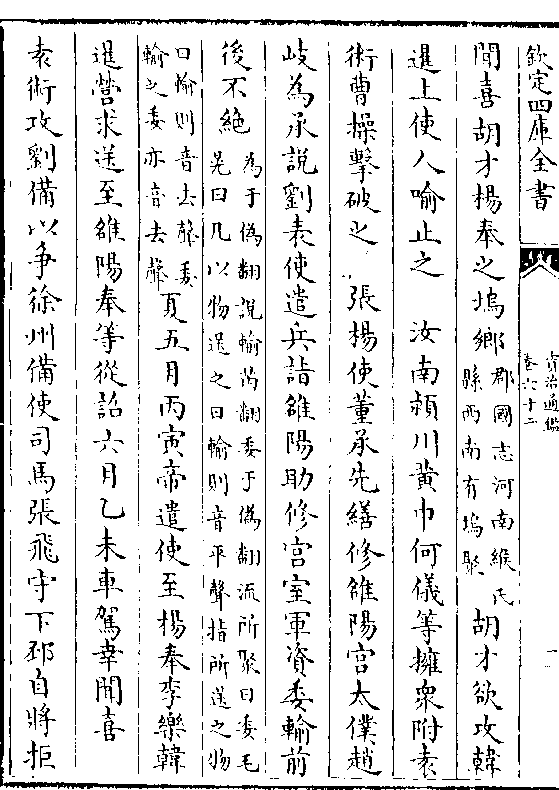 欽定四庫全書
資治通鑑
卷六十二
聞喜胡才楊奉之塢鄉
郡國志河南緱氏
縣西南有塢聚
胡才欲攻韓
暹上使人喻止之 汝南潁川黃巾何儀等擁衆附袁
術曹操擊破之 張楊使董承先繕修雒陽宮太僕趙
岐為承說劉表使遣兵詣雒陽助修宮室軍資委輸前
後不絶
為于偽翻說輸芮翻委于偽翻流所聚曰委毛
晃曰凡以物送之曰輸則音平聲指所送之物
曰輸則音去聲委
輸之委亦音去聲
夏五月丙寅帝遣使至楊奉李樂韓
暹營求送至雒陽奉等從詔六月乙未車駕幸聞喜
袁術攻劉備以爭徐州備使司馬張飛守下邳自將拒